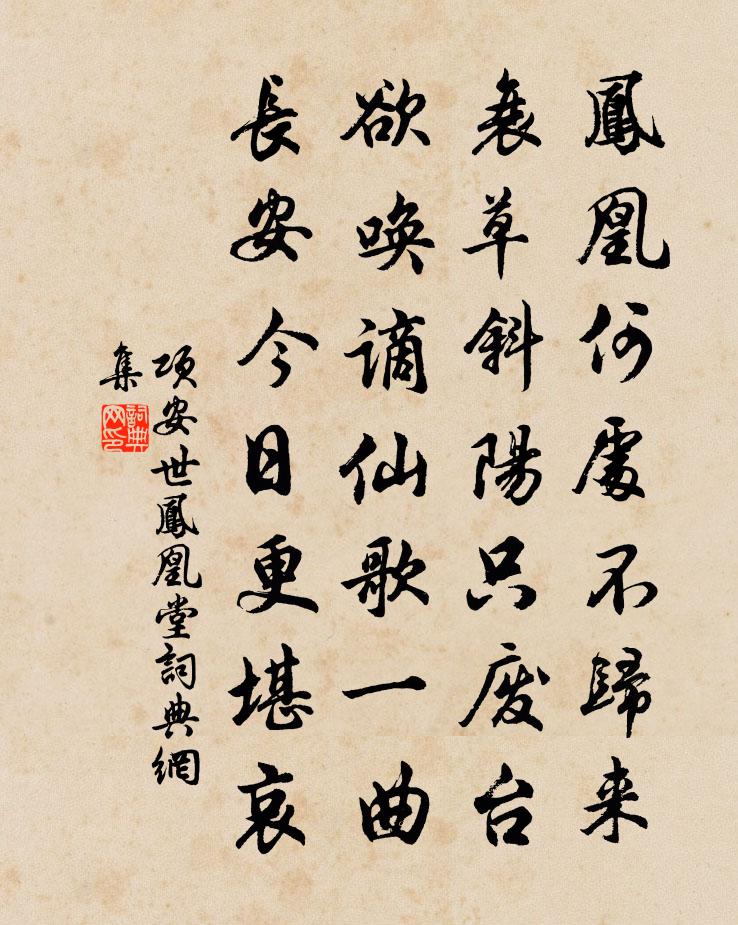 鳳凰何處不歸来
衰草斜陽只废台
欲唤謫仙歌一曲
長安今日更堪哀
項安世鳳凰堂詞典網
集
詞典网印